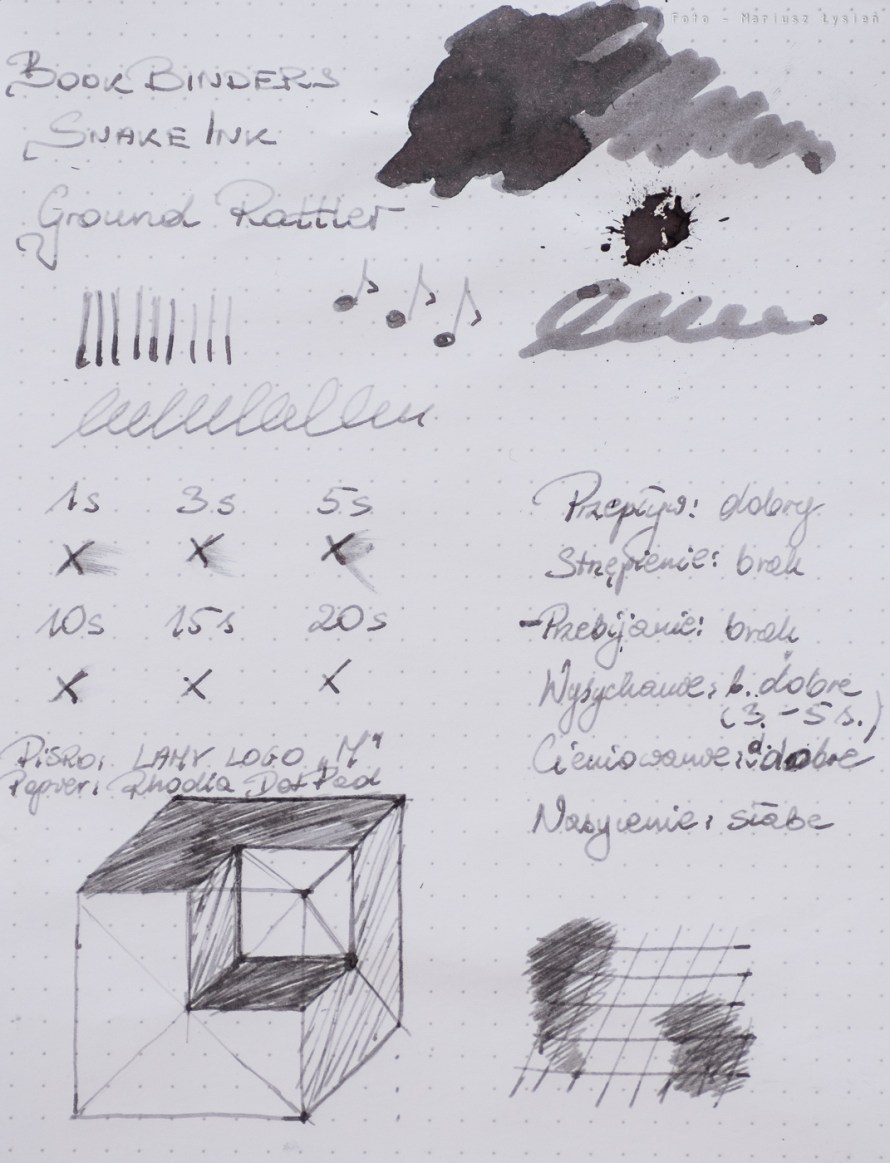 Foto - Mariusz Łysień
BookBinders
Snake Ink
Ground Rattler
1s 3s 5s
10s 15s 20s
Przepływ: dobry
Strzępienie: brak
-Przebijanie: brak
Wysychanie: b. dobre
(3.-5s.)
Cieniowanie: dobre
Nasycenie: słabe
Pióro: LAMY LOGO „M"
Papier: Rhodia Dot Pad